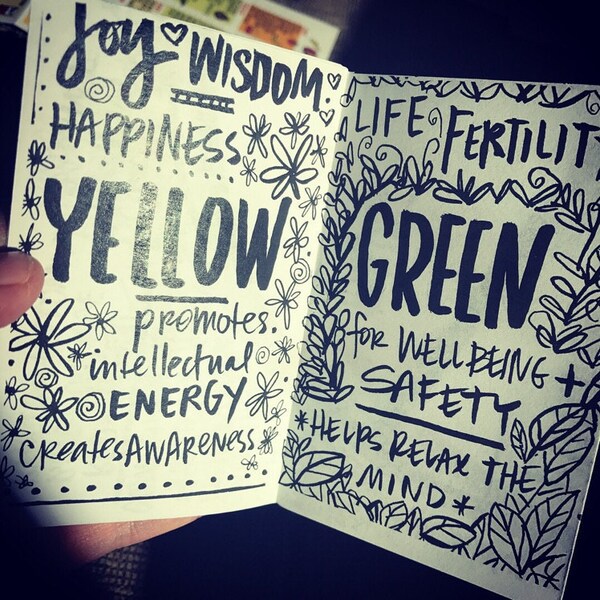 Joy WISDOM.
HAPPINESS
YELLOW
promotes.
intellectual
ENERGY
CreatesAWARENESS
LIFE FERTILITY
GREEN
for WELLBEING +
SAFETY
*HELPS RELAX THE
MIND*